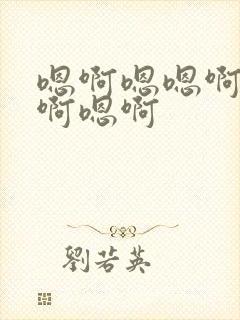 嗯啊嗯嗯啊
啊嗯啊
劉若英